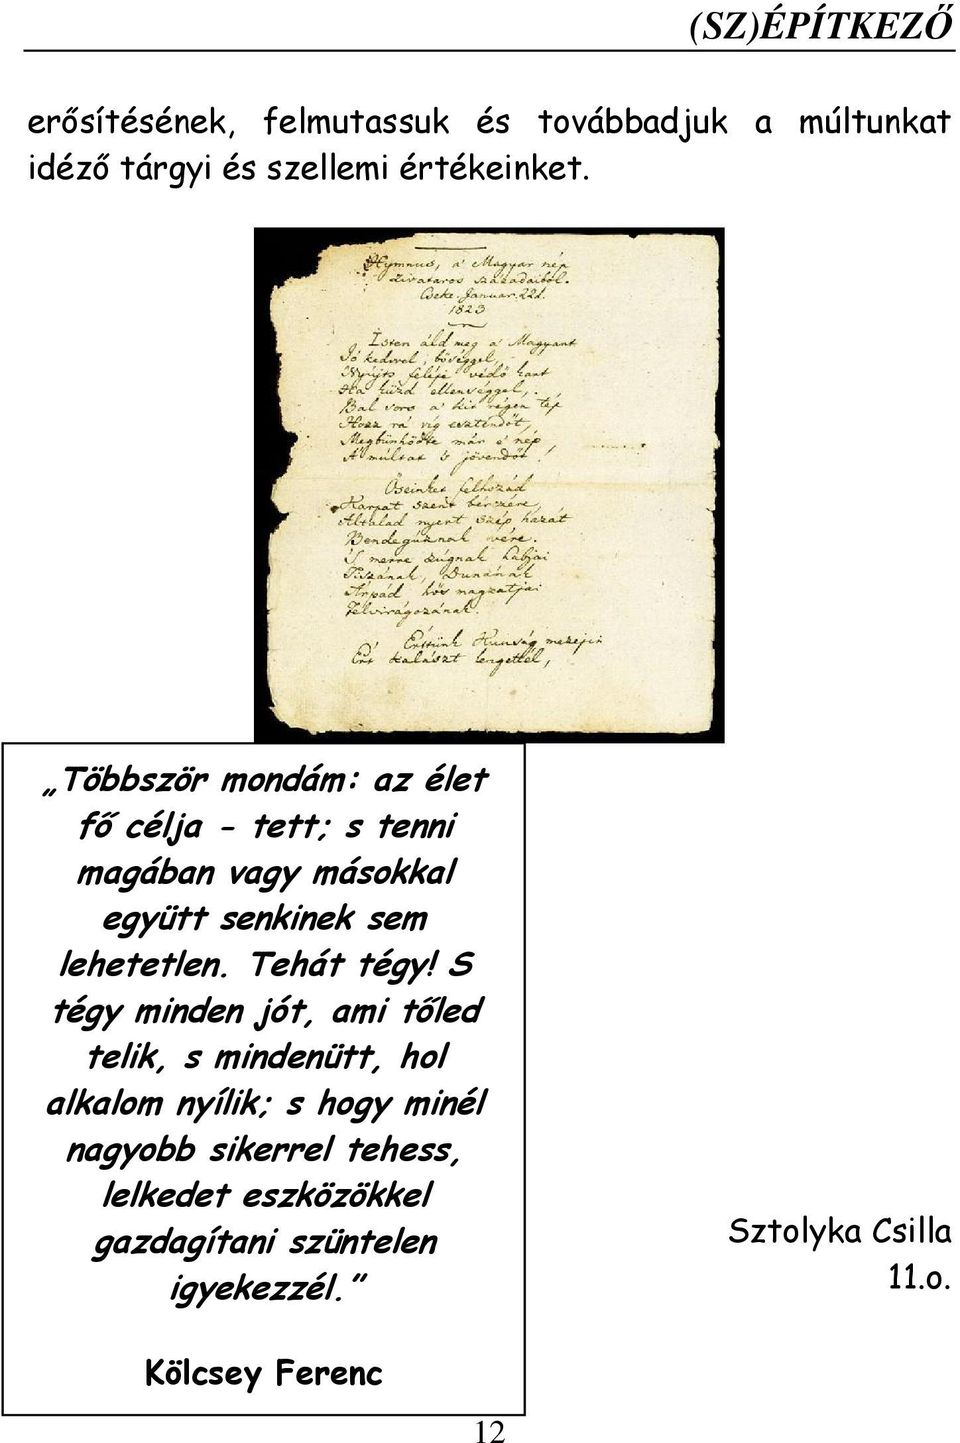 (SZ)ÉPÍTKEZŐ
erősítésének, felmutassuk és továbbadjuk a múltunkat
idéző tárgyi és szellemi értékeinket.
Hymnus, a' Magyar nép
zivataros századaiból.
Cseke. Januar. 22d.
1823
Isten áld meg a' Magyart
Jó kedvvel, bőséggel,
Nyújts feléje védő kart
Ha küzd ellenséggel,
Bal sors a' kit régen tép
Hozz rá víg esztendőt,
Megbűnhödte már e' nép
A' múltat 's jövendőt.
Őseinket felhozád
Kárpat szent bérczére,
Általad nyert szép hazát
Bendegúznak vére.
'S merre zúgnak habjai
Tiszának, Dunának
Árpád hős magzatjai
Felvirágozának.
Értünk Kunság mezején
Ért kalászt lengettél,
„Többször mondám: az élet
fő célja - tett; s tenni
magában vagy másokkal
együtt senkinek sem
lehetetlen. Tehát tégy! S
tégy minden jót, ami tőled
telik, s mindenütt, hol
alkalom nyílik; s hogy minél
nagyobb sikerrel tehess,
lelkedet eszközökkel
gazdagítani szüntelen
igyekezzél.”
Kölcsey Ferenc
Sztolyka Csilla
11.o.
12